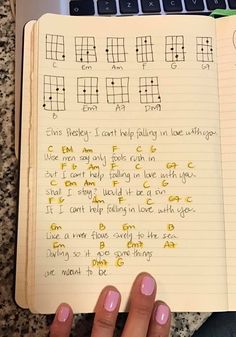 C Em Am F G G7
B Em9 A7 Dm9
Elvis Presley - I can't help falling in love with you
C EM Am F C G
Wise men say only fools rush in
F G Am F C G7 C
But I can't help falling in love with you
C Em Am F C G
Shall I stay? Would it be a sin
F G Am F C G7 C
If I can't help falling in love with you
Em B Em B
Like a river flows surely to the sea
Em B Em7 A7
Darling so it goes some things
Dm7 G
are meant to be